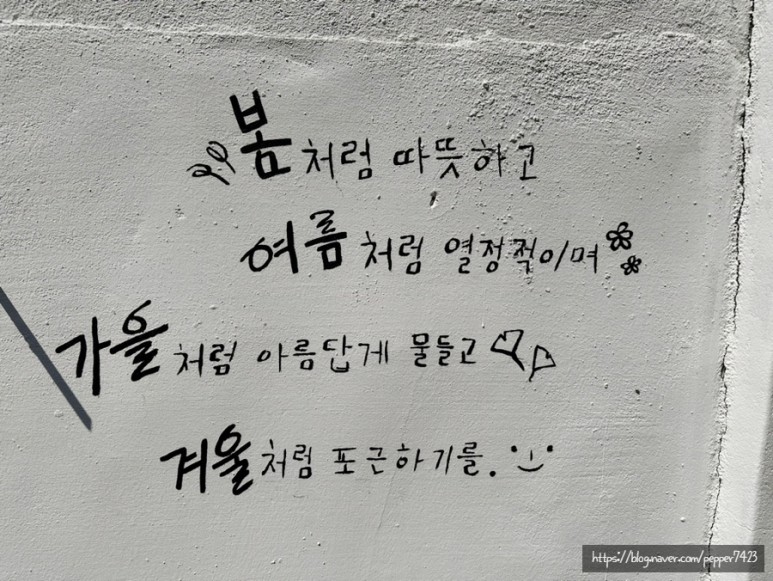 봄처럼 따뜻하고
여름처럼 열정적이며
가을처럼 아름답게 물들고
겨울처럼 포근하기를.
https://blog.naver.com/pepper7423